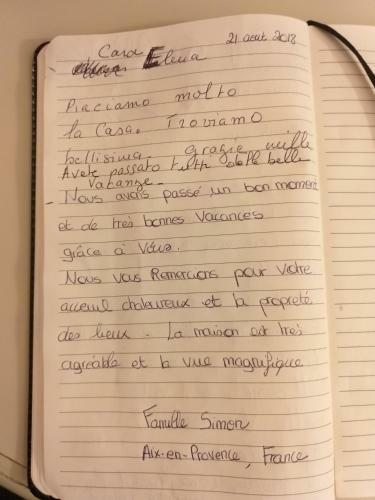 21 août 2018
Cara Elena
Piacciamo molto
la Casa. Troviamo
bellisima. grazie mille
Avete passato tutti delle belle
vacanze -
- Nous avons passé un bon moment
et de très bonnes vacances
grâce à Vous.
Nous vous Remercions pour votre
acceuil chaleureux et la propreté
des lieux. La maison est très
agréable et la vue magnifique
Famille Simon
Aix-en-Provence, France